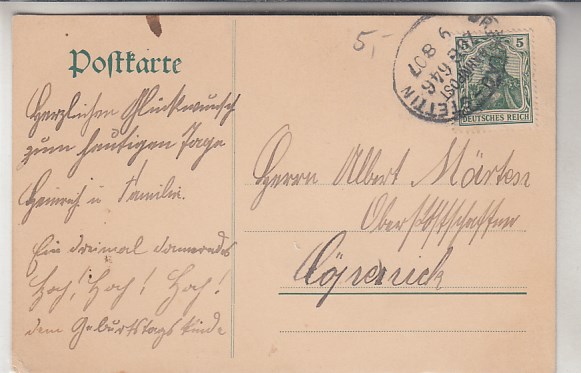 Postkarte
Herzlichen Glückwunsch
zum heutigen Tage
Heinrich u. Familie.
Ein dreimal donnerndes
Hoch! Hoch! Hoch!
dem Geburtstagskinde
5,-
STETTIN
BAHNPOST
ZUG 646
9 8 07
5
DEUTSCHES REICH
Herrn Albert Märten
Oberpostschaffner
Cöpenick